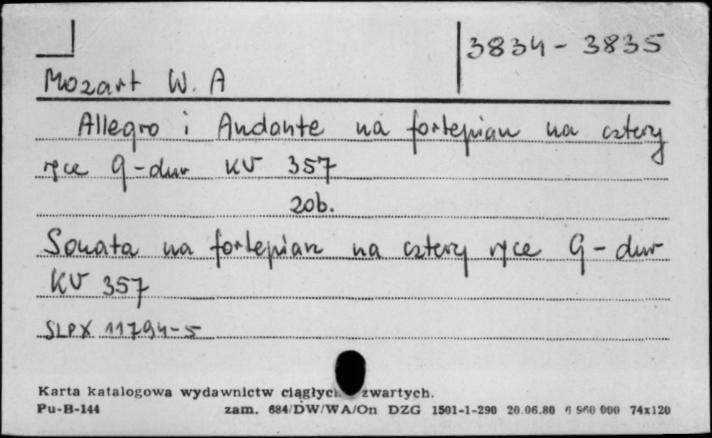 3834 - 3835
Mozart W. A
Allegro i Andante na fortepian na cztery
ręce G-dur KV 357
zob.
Sonata na fortepian na cztery ręce G-dur
KV 357
SLPX 11794-5
Karta katalogowa wydawnictw ciągłych zwartych.
Pu-B-144 zam. 684/DW/WA/On DZG 1501-1-290 20.06.80 6 960 000 74x120